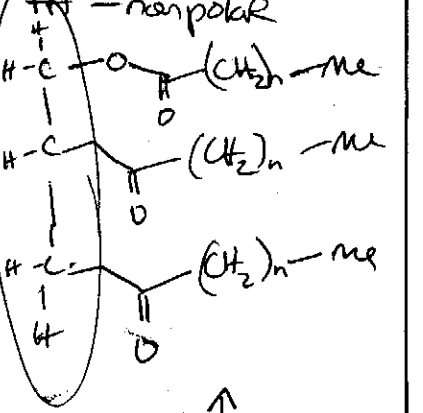 — nonpolar
H
H-C-O (CH2)n-Me
O
H-C (CH2)n-Me
O
H-C (CH2)n-Me
H O